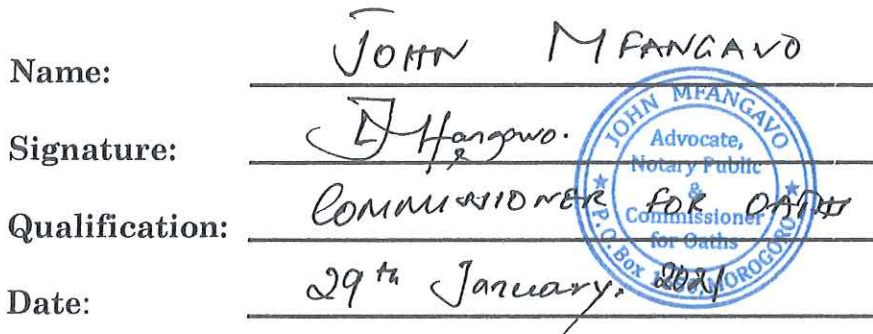 Name: JOHN MFANGAVO
Signature:
Qualification: COMMISSIONER FOR OATHS
Date: 29th January. 2021
JOHN MFANGAVO
Advocate,
Notary Public
&
Commissioner
for Oaths
P.O. Box MOROGORO